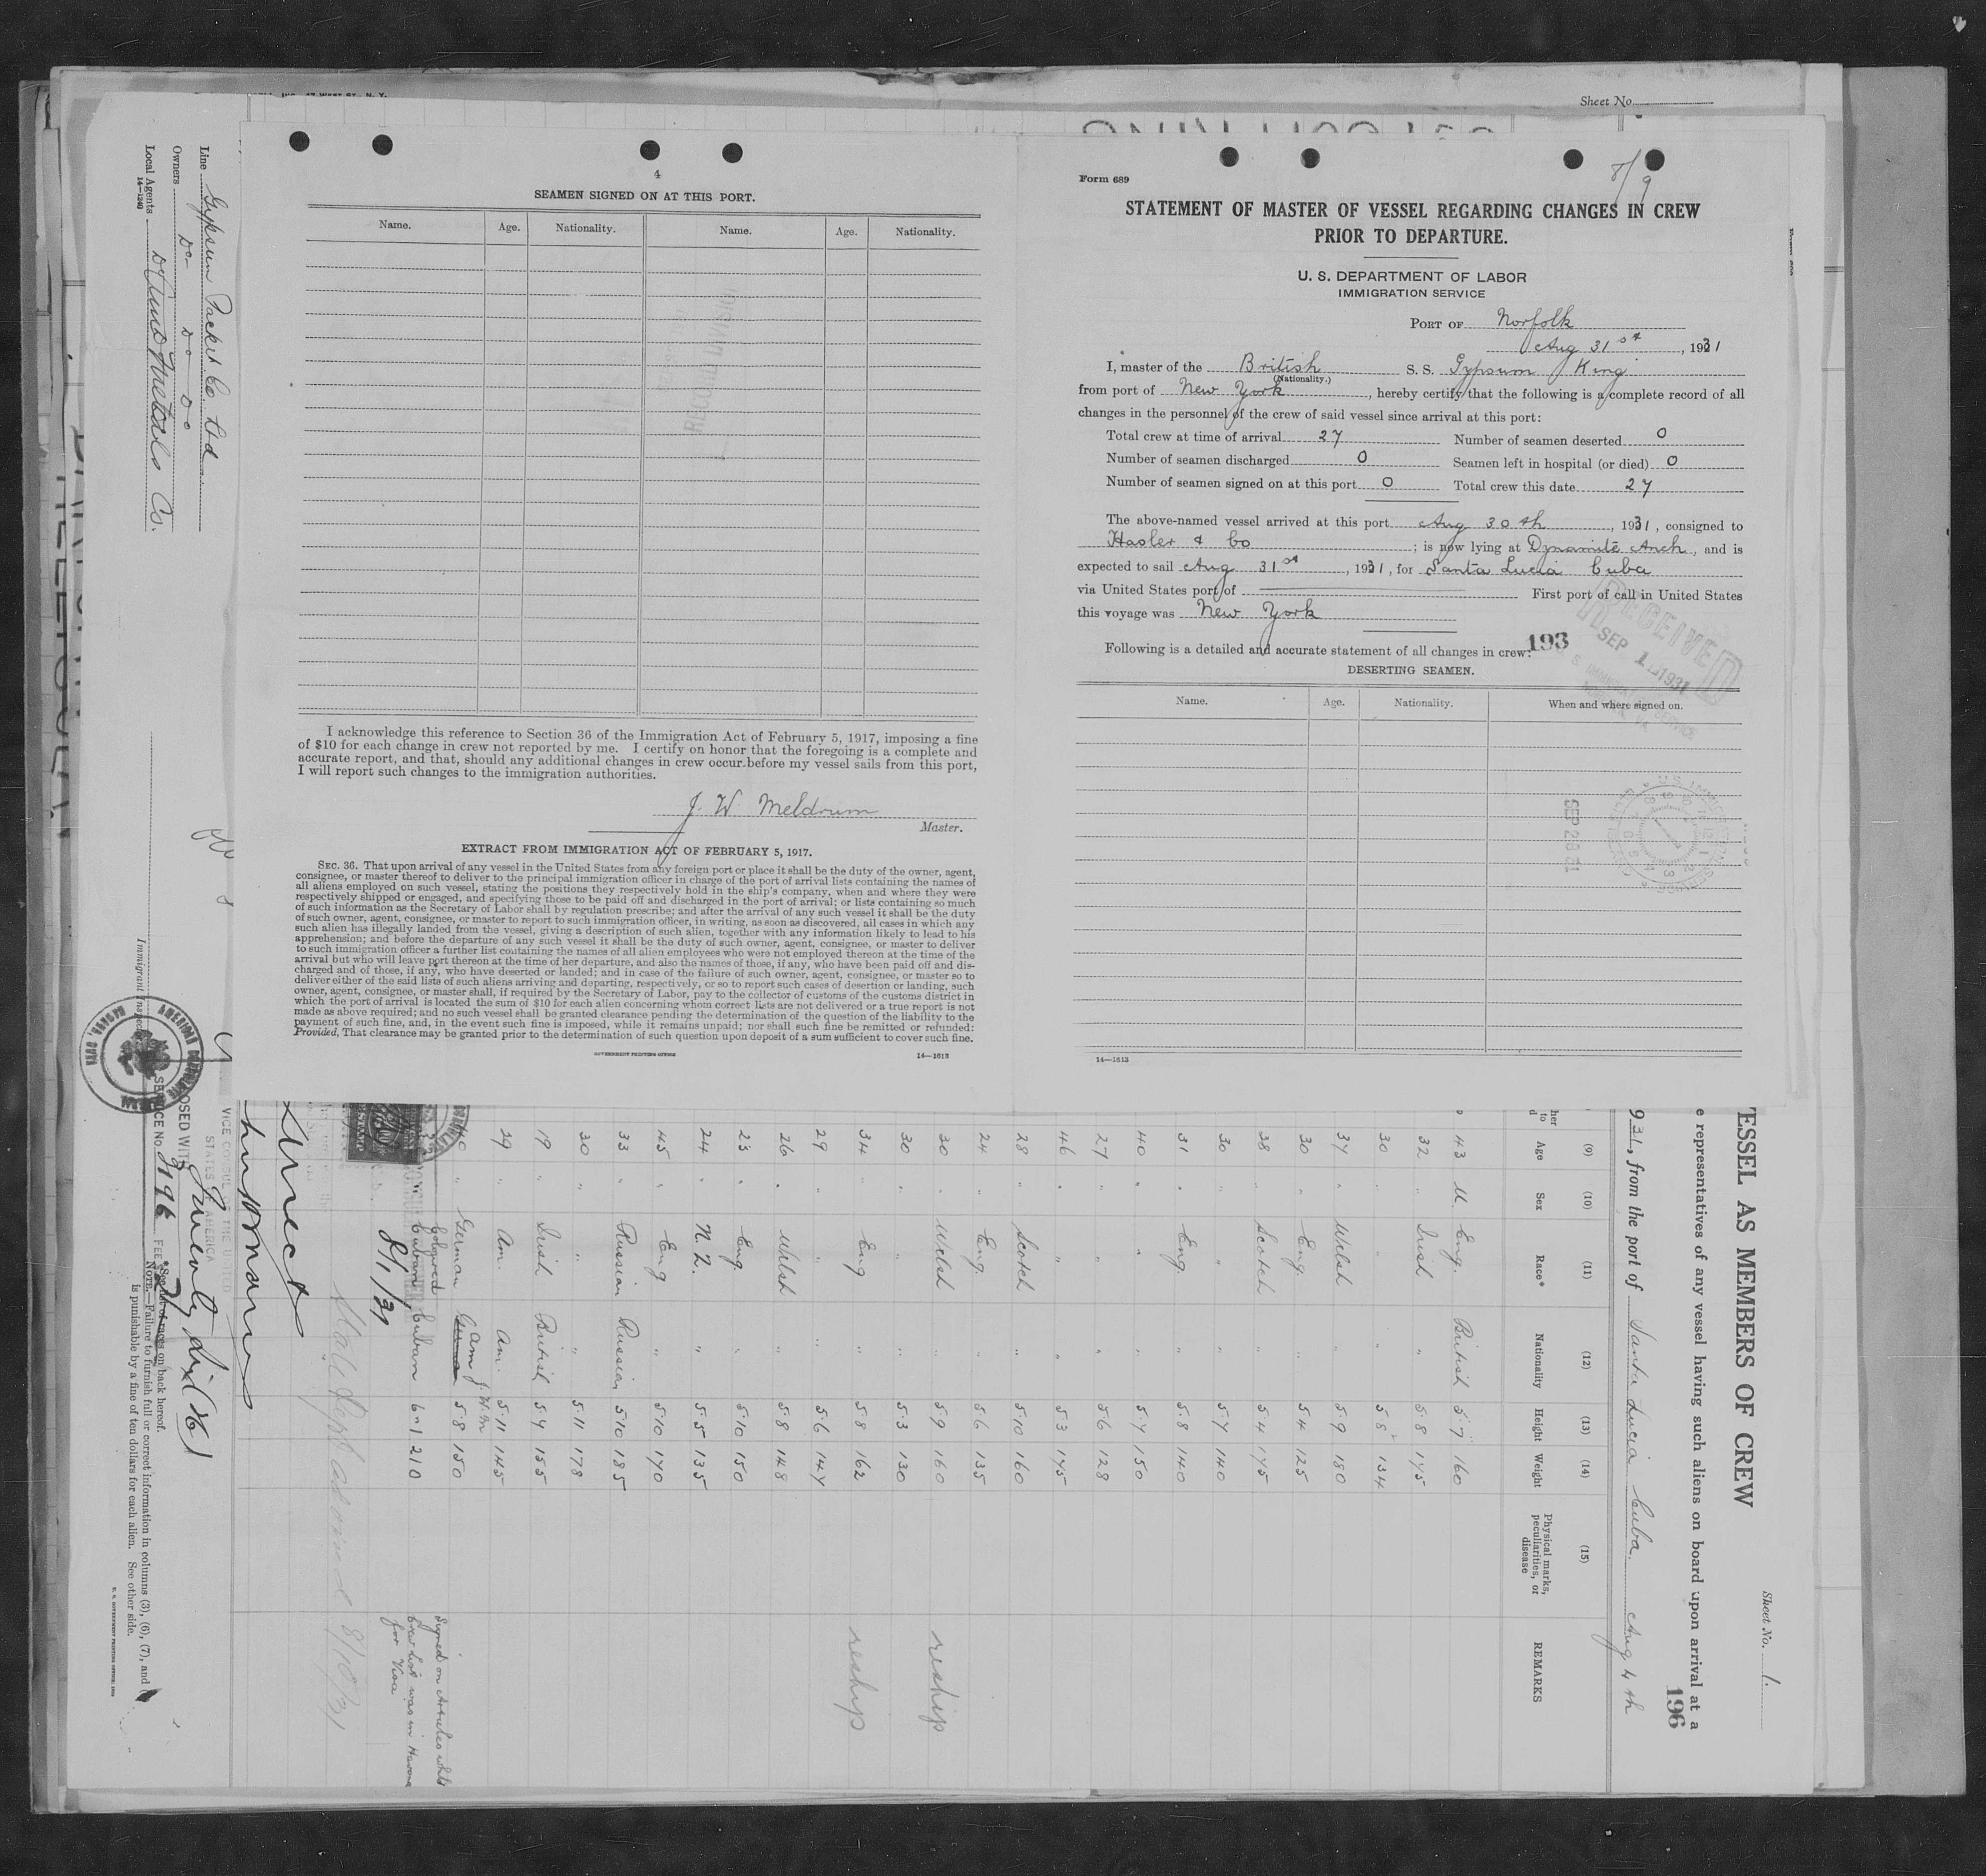 Sheet No.
4
SEAMEN SIGNED ON AT THIS PORT.
Name. Age. Nationality. Name. Age. Nationality.
RECORD DIVISION
I acknowledge this reference to Section 36 of the Immigration Act of February 5, 1917, imposing a fine
of $10 for each change in crew not reported by me. I certify on honor that the foregoing is a complete and
accurate report, and that, should any additional changes in crew occur before my vessel sails from this port,
I will report such changes to the immigration authorities.
J. W. Meldrum
Master.
EXTRACT FROM IMMIGRATION ACT OF FEBRUARY 5, 1917.
SEC. 36. That upon arrival of any vessel in the United States from any foreign port or place it shall be the duty of the owner, agent,
consignee, or master thereof to deliver to the principal immigration officer in charge of the port of arrival lists containing the names of
all aliens employed on such vessel, stating the positions they respectively hold in the ship's company, when and where they were
respectively shipped or engaged, and specifying those to be paid off and discharged in the port of arrival; or lists containing so much
of such information as the Secretary of Labor shall by regulation prescribe; and after the arrival of any such vessel it shall be the duty
of such owner, agent, consignee, or master to report to such immigration officer, in writing, as soon as discovered, all cases in which any
such alien has illegally landed from the vessel, giving a description of such alien, together with any information likely to lead to his
apprehension; and before the departure of any such vessel it shall be the duty of such owner, agent, consignee, or master to deliver
to such immigration officer a further list containing the names of all alien employees who were not employed thereon at the time of the
arrival but who will leave port thereon at the time of her departure, and also the names of those, if any, who have been paid off and dis-
charged and of those, if any, who have deserted or landed; and in case of the failure of such owner, agent, consignee, or master so to
deliver either of the said lists of such aliens arriving and departing, respectively, or so to report such cases of desertion or landing, such
owner, agent, consignee, or master shall, if required by the Secretary of Labor, pay to the collector of customs of the customs district in
which the port of arrival is located the sum of $10 for each alien concerning whom correct lists are not delivered or a true report is not
made as above required; and no such vessel shall be granted clearance pending the determination of the question of the liability to the
payment of such fine, and, in the event such fine is imposed, while it remains unpaid; nor shall such fine be remitted or refunded:
Provided, That clearance may be granted prior to the determination of such question upon deposit of a sum sufficient to cover such fine.
GOVERNMENT PRINTING OFFICE 14—1613
8/9
Form 689
STATEMENT OF MASTER OF VESSEL REGARDING CHANGES IN CREW
PRIOR TO DEPARTURE.
U. S. DEPARTMENT OF LABOR
IMMIGRATION SERVICE
PORT OF Norfolk
Aug 31st, 1931
I, master of the British S. S. Gypsum King
(Nationality.)
from port of New York, hereby certify that the following is a complete record of all
changes in the personnel of the crew of said vessel since arrival at this port:
Total crew at time of arrival 27 Number of seamen deserted 0
Number of seamen discharged 0 Seamen left in hospital (or died) 0
Number of seamen signed on at this port 0 Total crew this date 27
The above-named vessel arrived at this port Aug 30th, 1931, consigned to
Hasler & Co; is now lying at Dynamite Anch, and is
expected to sail Aug 31st, 1931, for Santa Lucia Cuba
via United States port of First port of call in United States
this voyage was New York
Following is a detailed and accurate statement of all changes in crew:
193
RECEIVED
SEP 1 1931
U. S. IMMIGRATION SERVICE
DESERTING SEAMEN.
Name. Age. Nationality. When and where signed on.
SEP 28 31
14—1613
Line Gypsum Packet Co. Ltd
Owners Do Do Do
Local Agents
14—1240
Immigrant Inspector
ESSEL AS MEMBERS OF CREW
Sheet No. 1.
e representatives of any vessel having such aliens on board upon arrival at a
196
931, from the port of Santa Lucia Cuba. Aug 4th
(9) (10) (11) (12) (13) (14) (15)
Age Sex Race* Nationality Height Weight Physical marks, peculiarities, or disease REMARKS
43 M. Eng. British 5.7 160
32 " Irish " 5.8 175
30 " " " 5.8 134
37 " Welsh " 5.9 180
30 " Eng. " 5.4 125
38 " Scotch " 5.4 175
30 " " " 5.7 140
31 " Eng. " 5.8 140
40 " " " 5.7 150
27 " " " 5.6 128
46 " " " 5.3 145
28 " Scotch " 5.10 160
24 " Eng. " 5.6 135
30 " Welsh " 5.9 160 reship
30 " " " 5.3 130
34 " Eng " 5.8 162 reship
29 " " " 5.6 147
26 " Welsh " 5.8 148
23 " Eng " 5.10 150
24 " N. Z. " 5.5 135
45 " Eng " 5.10 170
33 " Russian Russian 5.10 185
30 " " " 5.11 178
19 " Irish British 5.4 155
29 " Am. Am. 5.11 145
40 " German Am J.W.M 5.8 150
Colored Cuban Cuban 6-1 210
Signed on Articles whilst
Crew List was in Havana
for Visa
8/1/31
8/10/31
VICE CONSUL OF THE UNITED
STATES AMERICA
SERVICE No. 3196 FEE
*See list of races on back hereof.
NOTE.—Failure to furnish full or correct information in columns (3), (6), (7), and
is punishable by a fine of ten dollars for each alien. See other side.